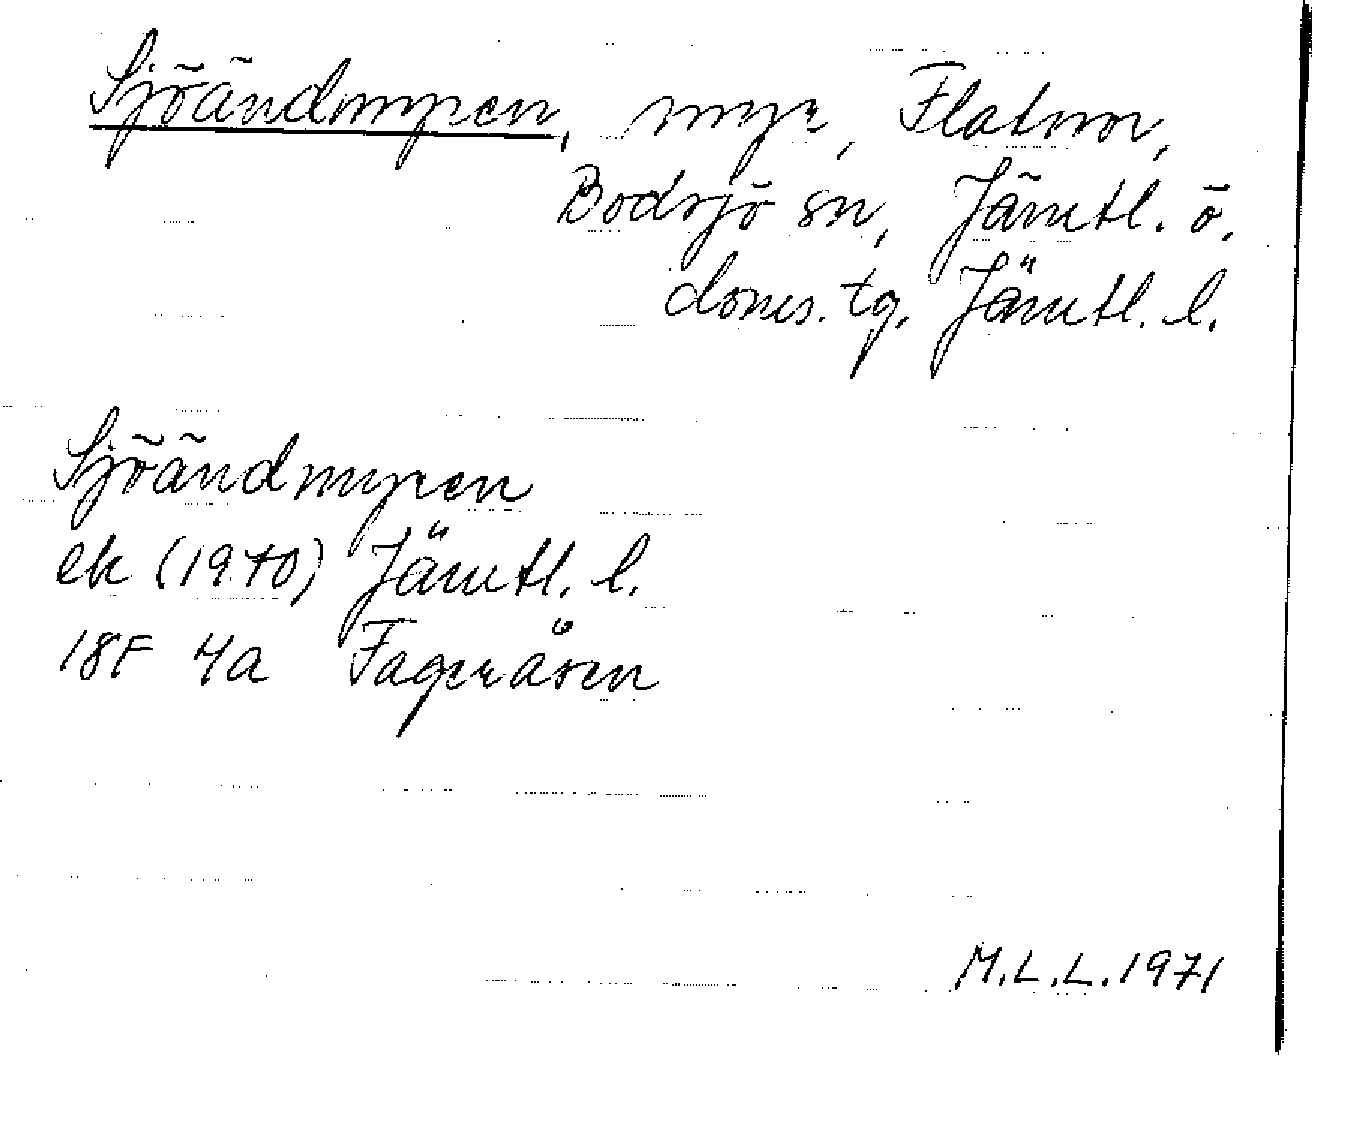 Sjöändmyren, myr, Flatnor,
Bodsjö sn, Jämtl. ö.
doms. tg. Jämtl. l.
Sjöändmyren
ek (1970) Jämtl. l.
18F 4a Fageråsen
M.L.L. 1971